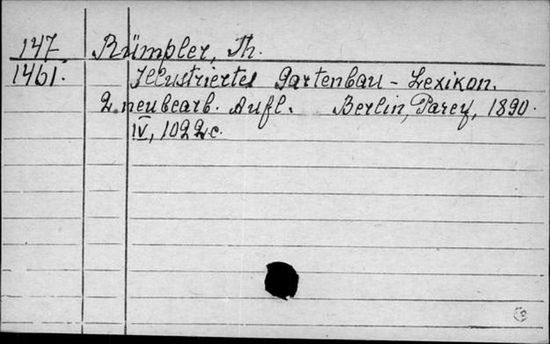 147 Rümpler, Th.
1461. Illustriertes Gartenbau-Lexikon.
2. neubearb. Aufl. Berlin, Parey, 1890.
IV, 1022 c.